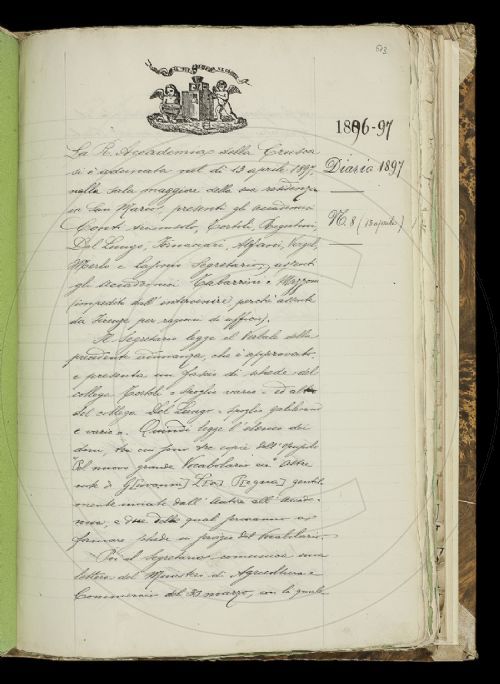 613
1896-97
Diario 1897
N. 8 (13 aprile)
La R. Accademia della Crusca
si è adunata nel dì 13 aprile 1897,
nella sala maggiore della sua residenza
in San Marco, presenti gli accademici
Conti arciconsolo, Tortoli, Rigutini,
Del Lungo, Fornaciari, Alfani, Vogel,
Merlo e Segretario, assenti
gli accademici Tabarrini e Mazzoni
impediti dall'intervenire perchè assenti
da Firenze per ragioni di
Il Segretario legge il Verbale della
precedente adunanza, che è approvato,
e presenta un fascio di schede del
collega Tortoli = spoglio vario = ed altro
del collega Del Lungo = spoglio
e vario =. Quindi legge l'elenco dei
doni, tra cui sono tre copie dell'
Pel nuovo grande Vocabolario ecc.
di G[iovanni] L[a] R[agione] gentil
mente inviate dall'autore all'Accade-
mia, e due delle quali
schede su proprio del Vocabolario.
Poi il Segretario comunica una
lettera del Ministero di Agricoltura e
Commercio del 31 marzo, con la quale